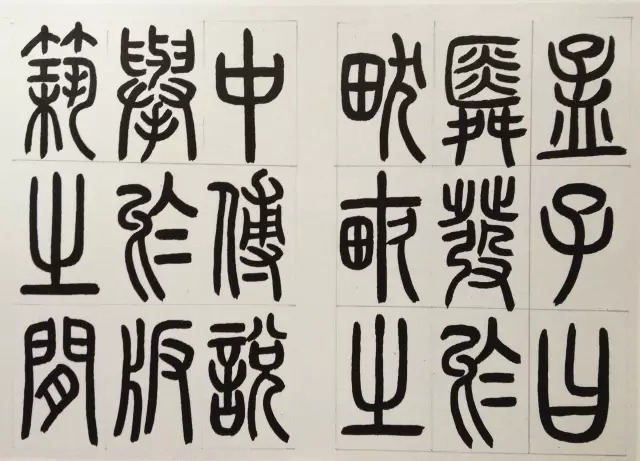 孟子曰
舜發於
畎畝之
中傅說
舉於版
築之閒